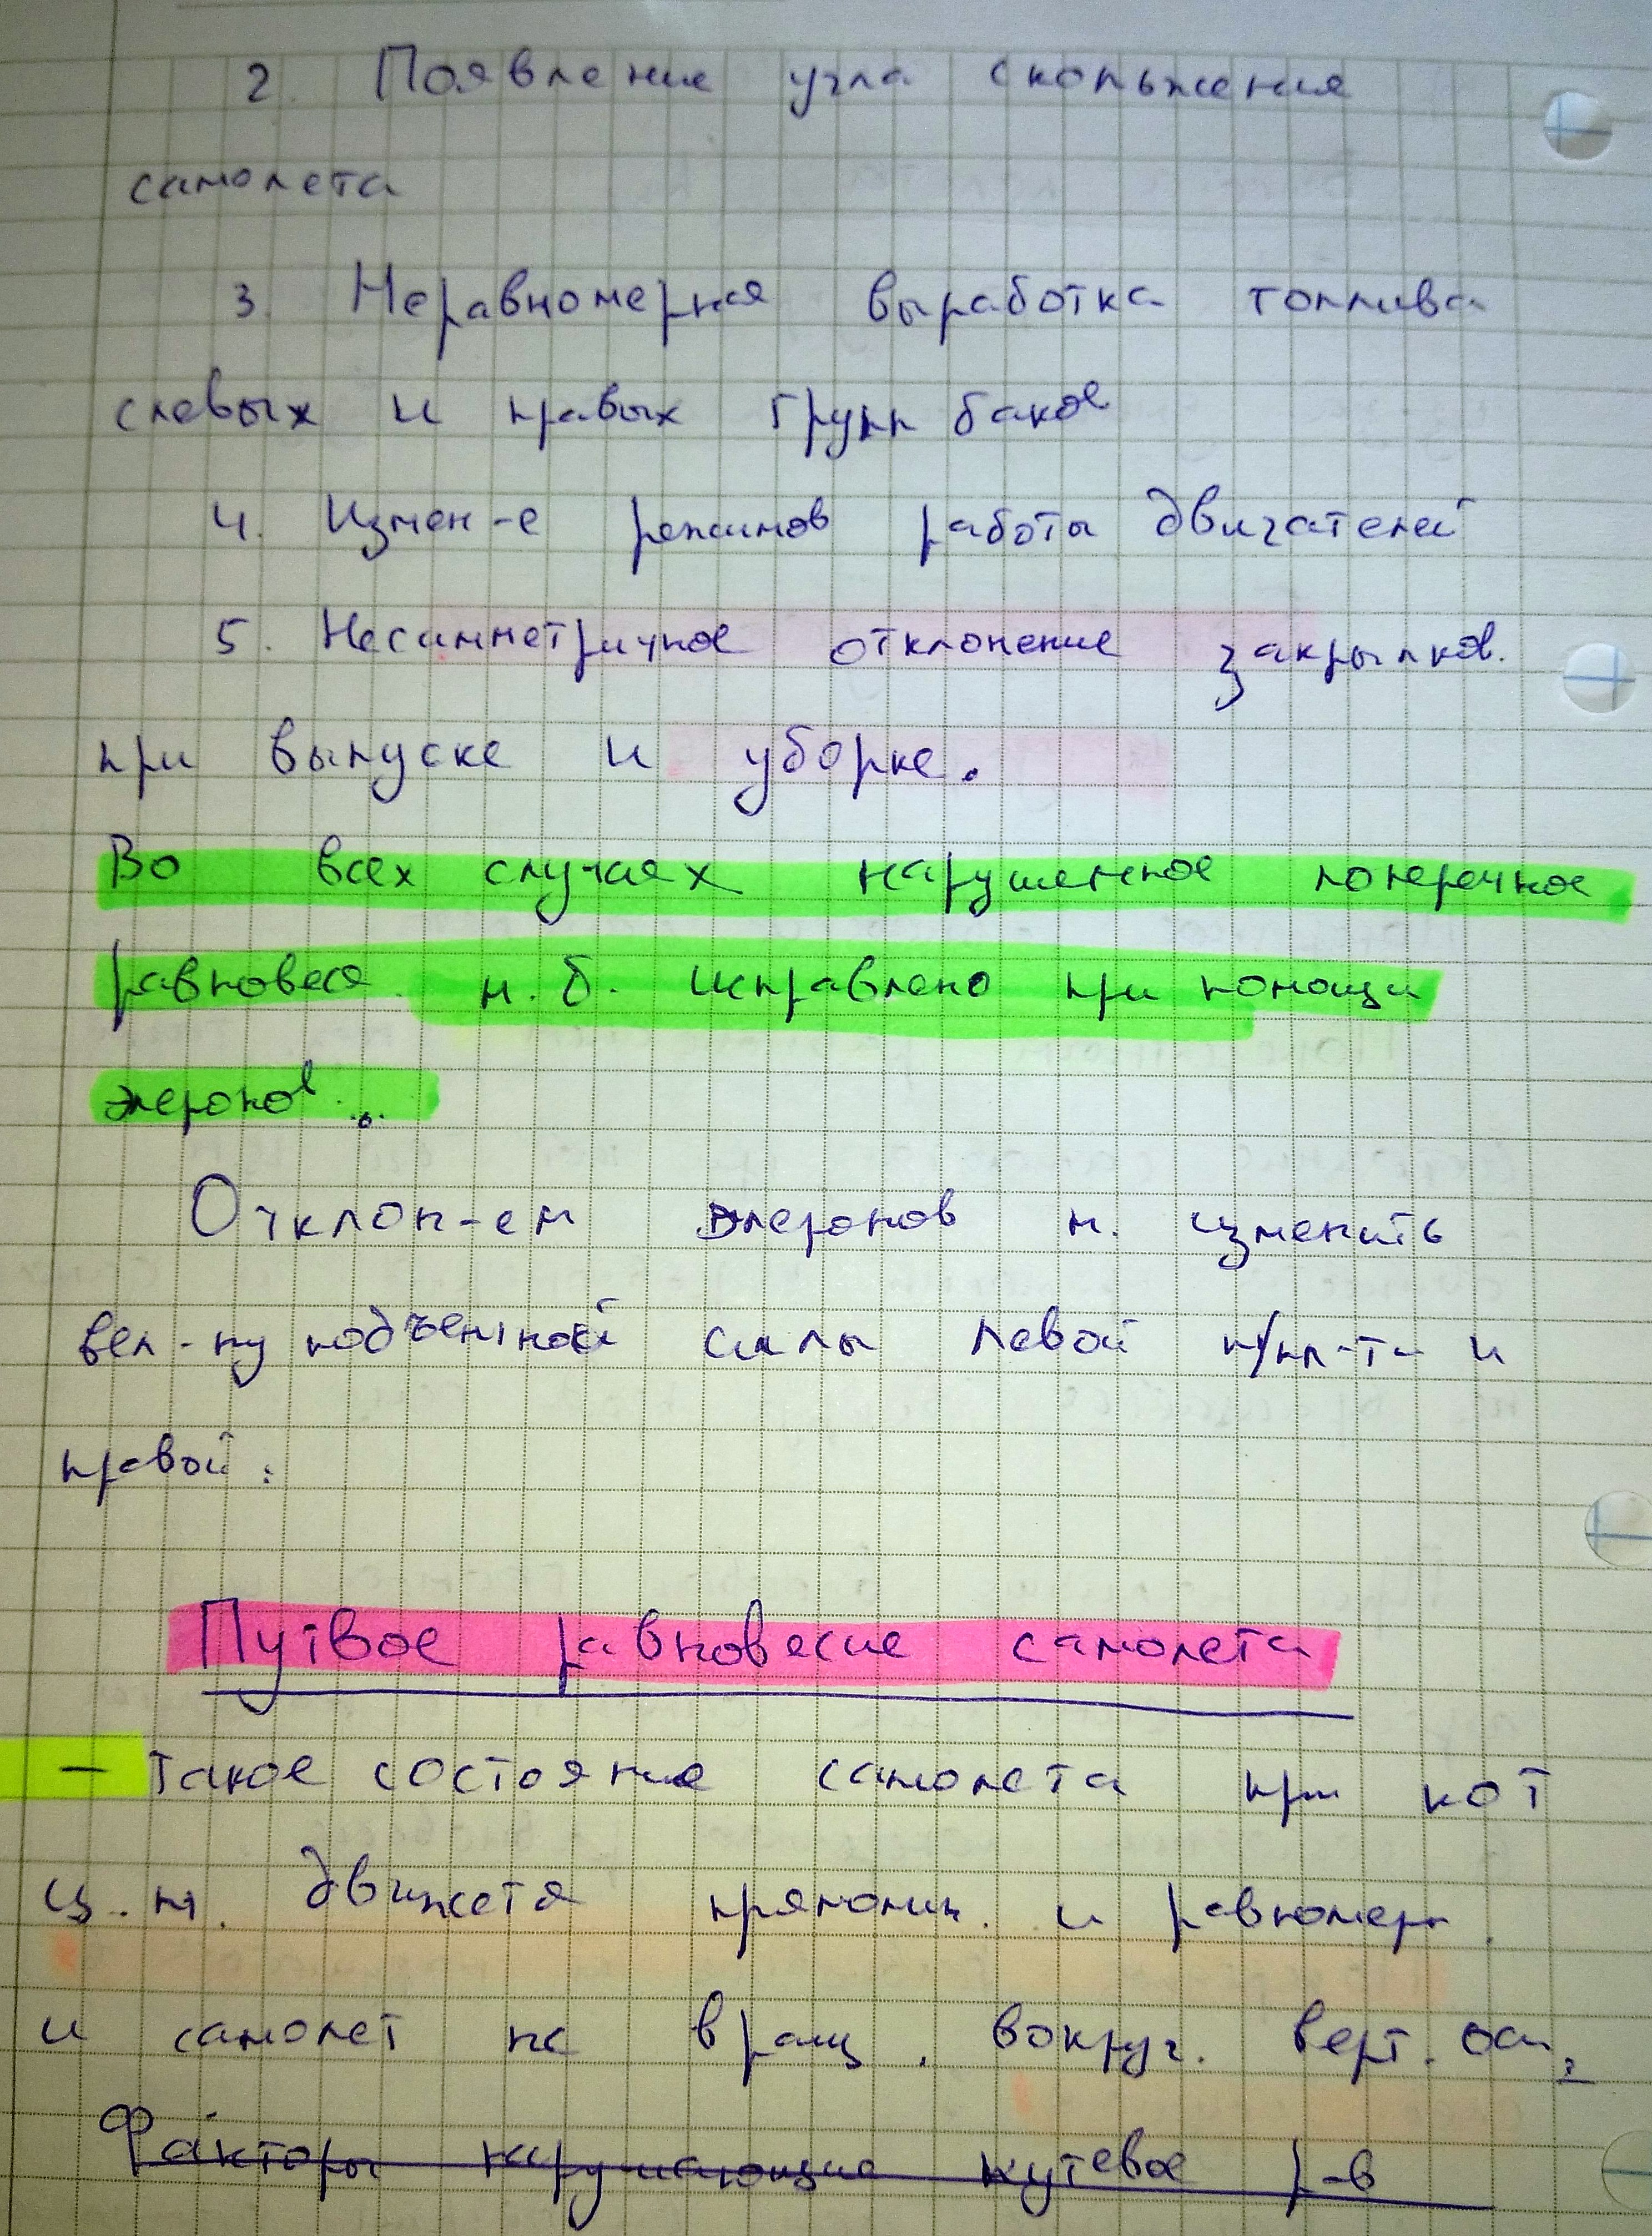 2. Появление угла скольжения
самолета
3. Неравномерная выработка топлива
с левых и правых групп баков
4. Измен-е режимов работы двигателей
5. Несимметричное отклонение закрылков.
при выпуске и уборке.
Во всех случаях нарушенное поперечное
равновеся м.б. исправлено при помощи
элеронов.
Отклон-ем элеронов м. изменить
вел-ну подъемной силы левой п/пл-ти и
правой.
Путвое равновесие самолета
- Такое состояние самолета при кот
ц.м. движется прямолин. и равномерн.
и самолет не вращ. вокруг. верт. оси.
Факторы нарушающие путевое р-в